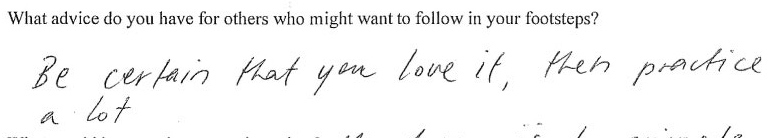 What advice do you have for others who might want to follow in your footsteps?
Be certain that you love it, then practice
a lot